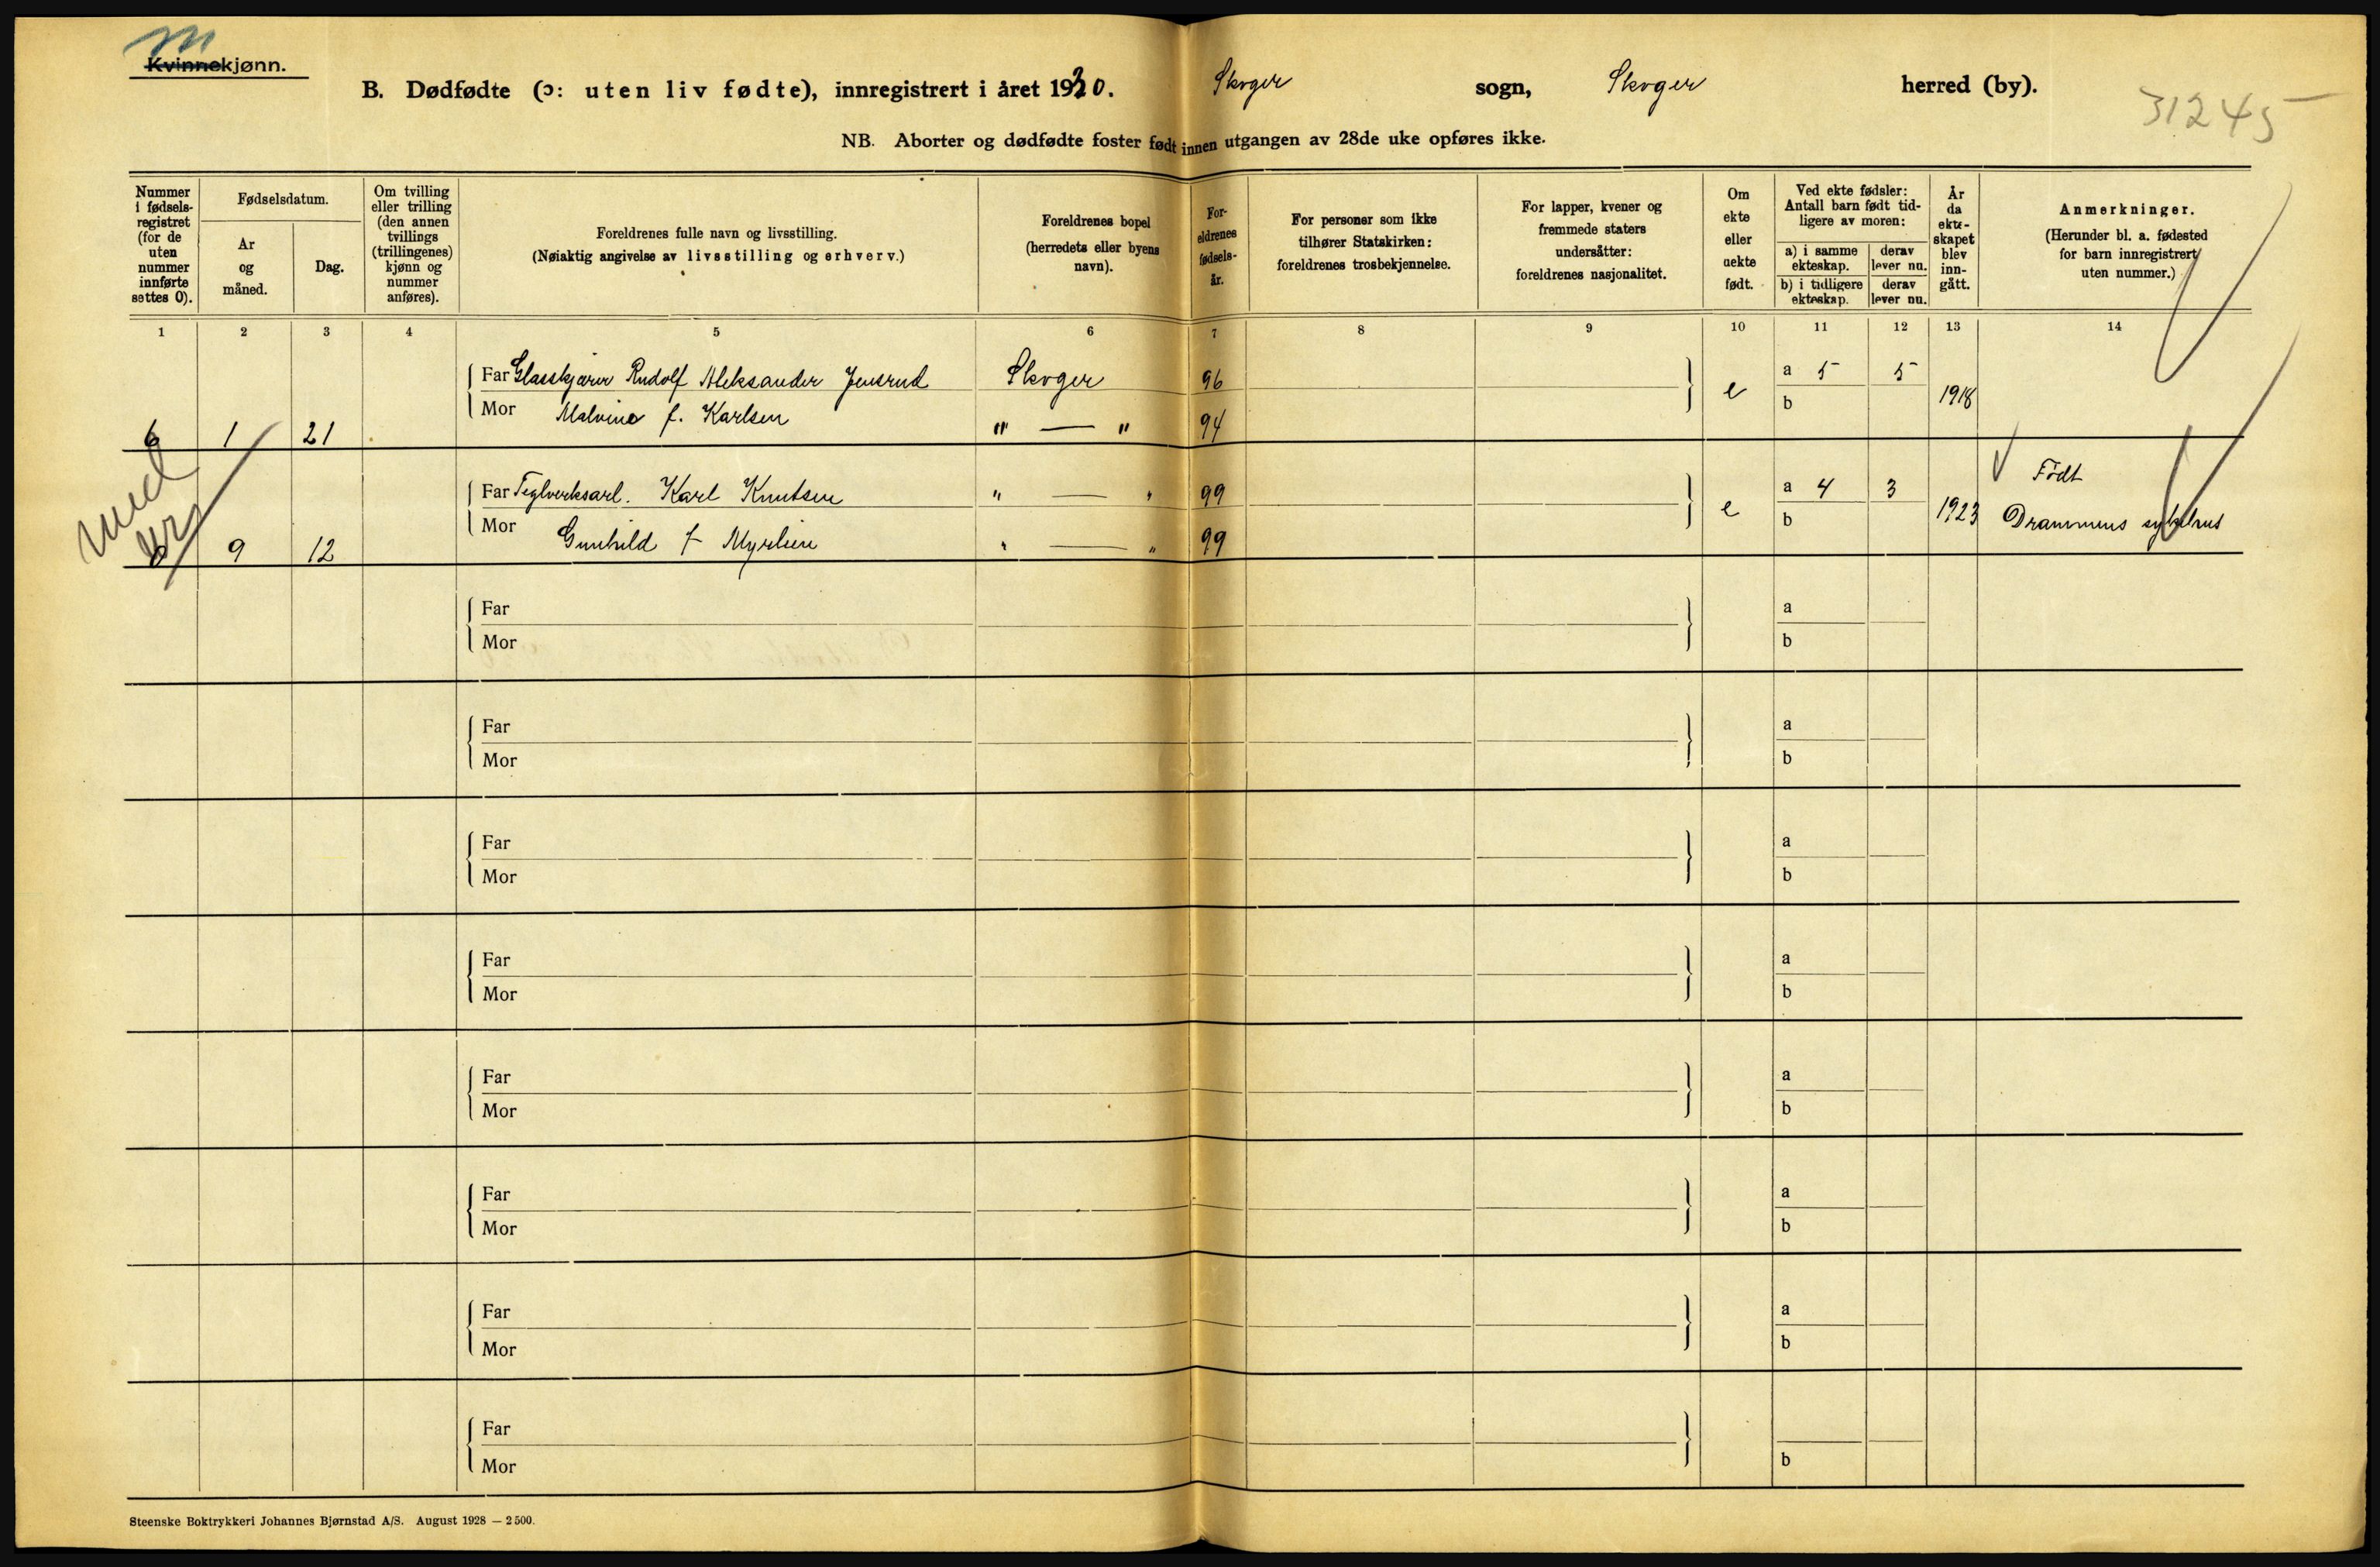 M
Kvinnekjønn.
B. Dødfødte (ɔ: uten liv fødte), innregistrert i året 1930. Skoger sogn, Skoger herred (by).
31245
NB. Aborter og dødfødte foster født innen utgangen av 28de uke opføres ikke.
Nummer i fødsels-registret (for de uten nummer innførte settes 0).
Fødselsdatum.
År og måned.
Dag.
Om tvilling eller trilling (den annen tvillings (trillingenes) kjønn og nummer anføres).
Foreldrenes fulle navn og livsstilling.
(Nøiaktig angivelse av livsstilling og erhverv.)
Foreldrenes bopel (herredets eller byens navn).
For-eldrenes fødsels-år.
For personer som ikke tilhører Statskirken: foreldrenes trosbekjennelse.
For lapper, kvener og fremmede staters undersåtter: foreldrenes nasjonalitet.
Om ekte eller uekte født.
Ved ekte fødsler: Antall barn født tid-ligere av moren:
a) i samme ekteskap.
derav lever nu.
b) i tidligere ekteskap.
derav lever nu.
År da ekte-skapet blev inn-gått.
Anmerkninger.
(Herunder bl. a. fødested for barn innregistrert uten nummer.)
1 2 3 4 5 6 7 8 9 10 11 12 13 14
Far Glasskjærer Rudolf Aleksander Jensrud Skoger 96 a 5 5
Mor Malvine f. Karlsen " — " 94 e b 1918
6 1 21
Far Teglverksarb. Karl Knutsen " — " 99 a 4 3 Født
Mor Gunhild f. " — " 99 e b 1923 Drammens sykehus
0 9 12
Far a
Mor b
Far a
Mor b
Far a
Mor b
Far a
Mor b
Far a
Mor b
Far a
Mor b
Far a
Mor b
Far
Mor b
Steenske Boktrykkeri Johannes Bjørnstad A/S. August 1928 — 2500.